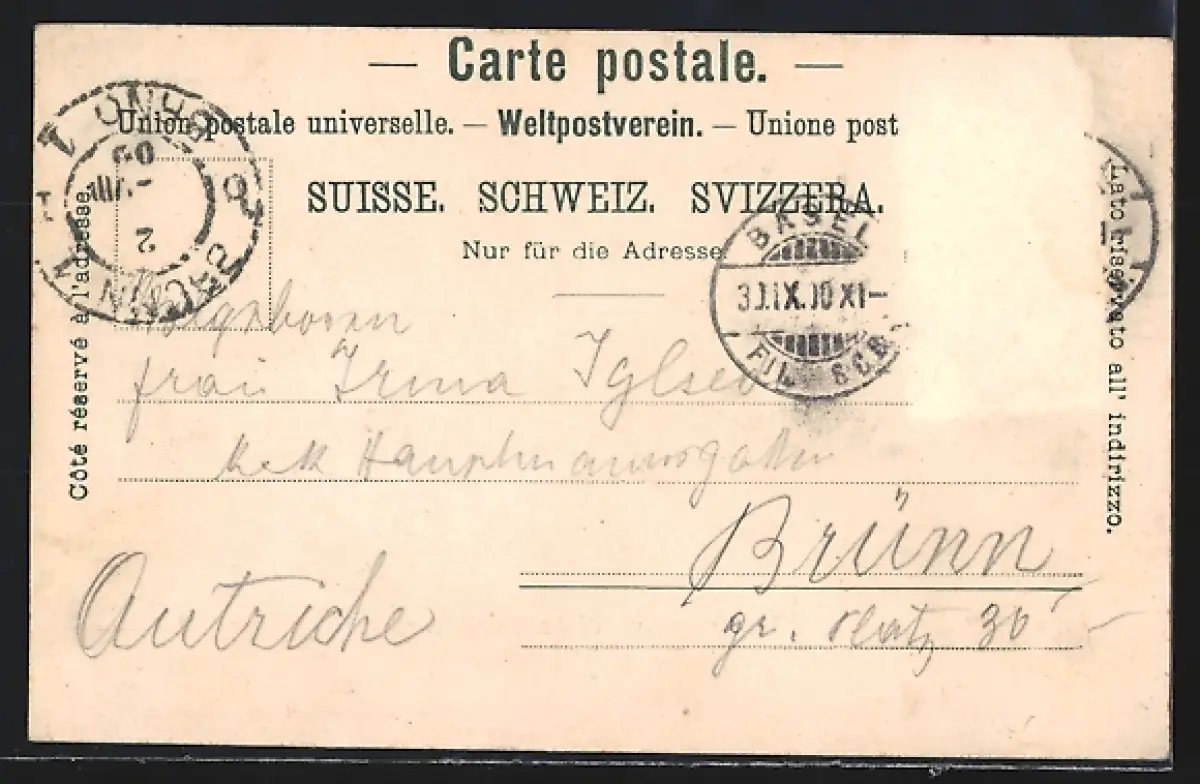 — Carte postale. —
Union postale universelle. — Weltpostverein. — Unione post
SUISSE. SCHWEIZ. SVIZZERA.
Nur für die Adresse
Côté réservé à l'adresse.
Lato riservato all' indirizzo.
BASEL
FIL
frau Irma
k k Hauptmannsgattin
Brünn
gr. Platz 30
Autriche